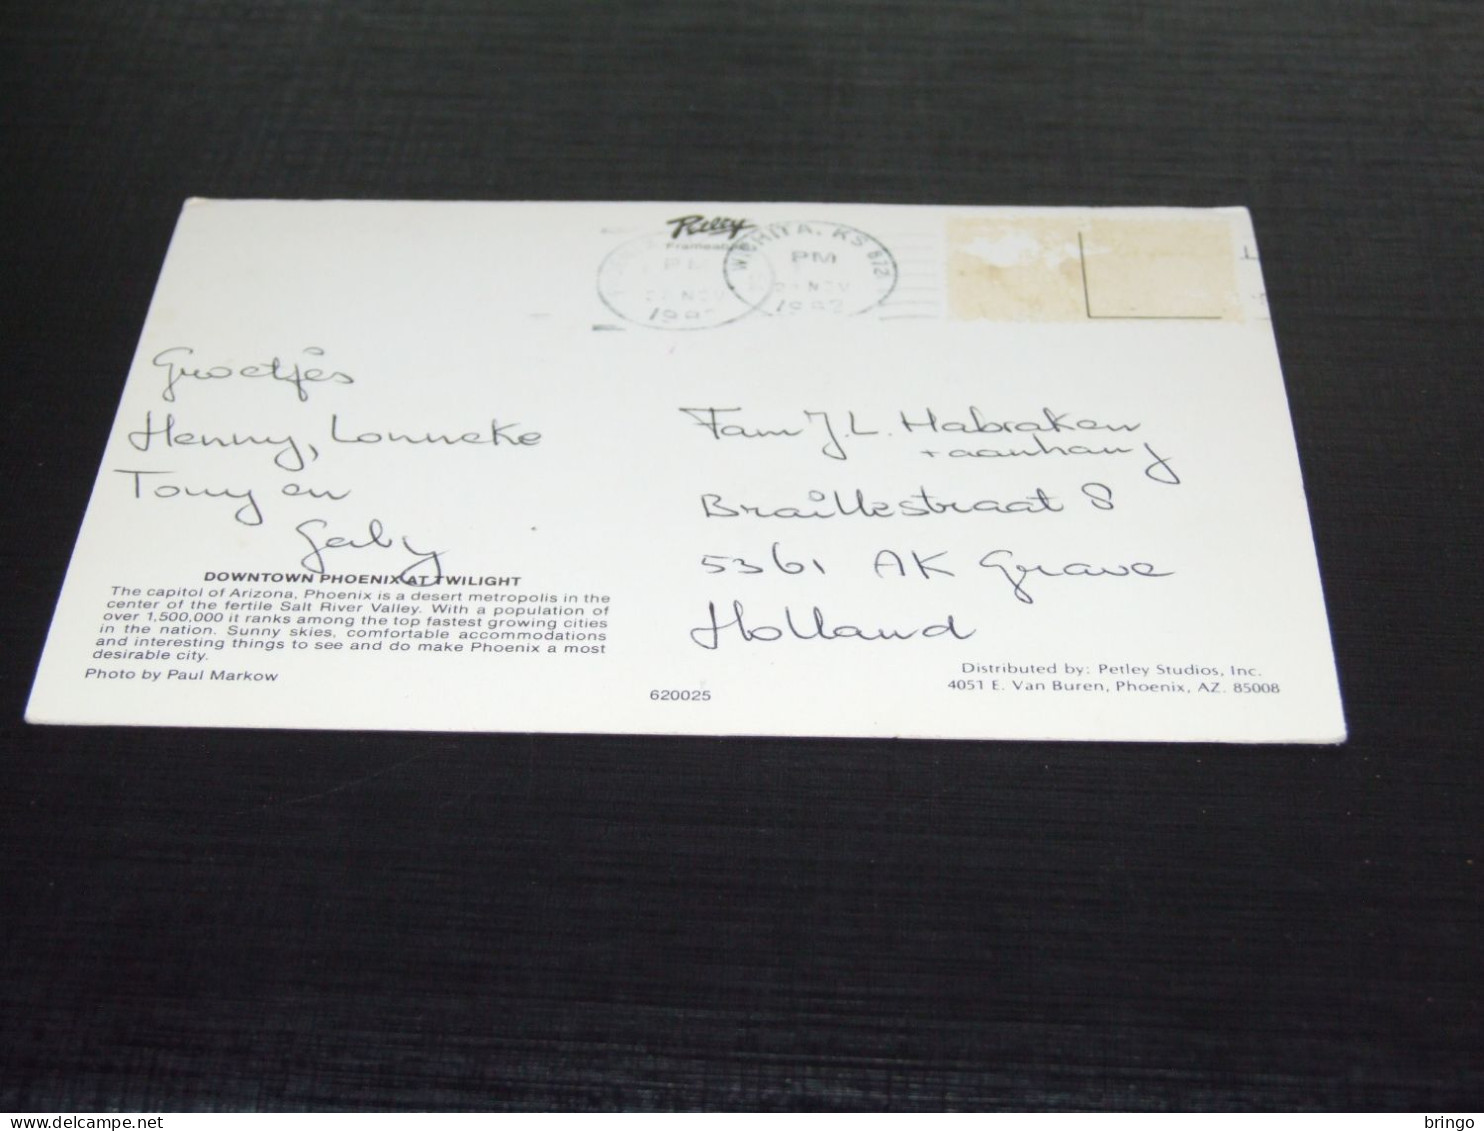 Petley
WICHITA, KS 672
PM
NOV
1982
PM
NOV
Groetjes
Henny, Lonneke
Tony en
Gaby
Fam J.L. Habraken
+ aanhang
Braillestraat 8
5361 AK Grave
Holland
DOWNTOWN PHOENIX AT TWILIGHT
The capitol of Arizona, Phoenix is a desert metropolis in the
center of the fertile Salt River Valley. With a population of
over 1,500,000 it ranks among the top fastest growing cities
in the nation. Sunny skies, comfortable accommodations
and interesting things to see and do make Phoenix a most
desirable city.
Photo by Paul Markow
620025
Distributed by: Petley Studios, Inc.
4051 E. Van Buren, Phoenix, AZ. 85008
delcampe.net
bringo